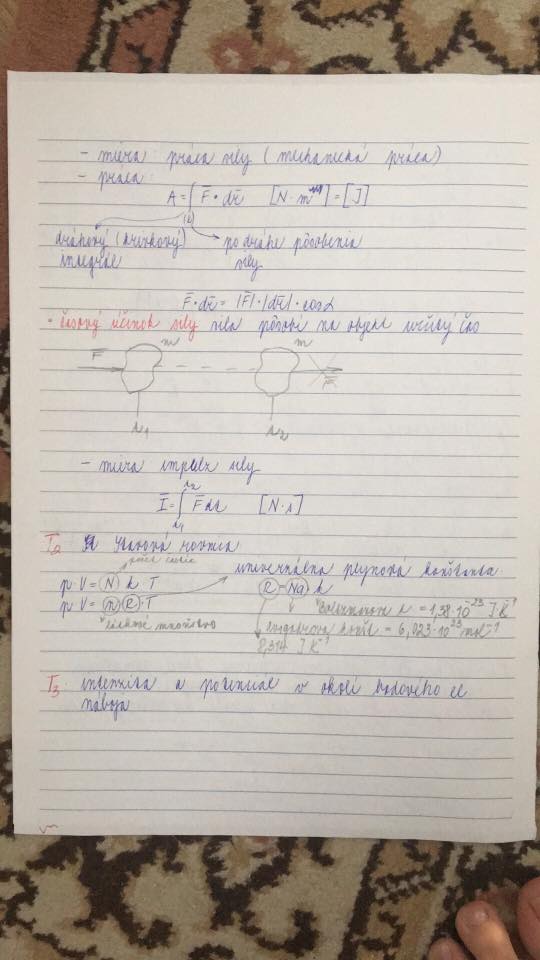 - miera: práca sily (mechanická práca)
- práca:
A = ∫(l) F̄ • dr̄ [N·m] = [J]
dráhový (krivkový) integrál
po dráhe pôsobenia sily
F̄ • dr̄ = |F̄|·|dr̄|·cosα
• časový účinok sily sila pôsobí na objekt určitý čas
F̄ m m F̄
t1 t2
- miera impulz sily
Ī = ∫t1 t2 F̄ dt [N·s]
T2 Stavová rovnica
počet častíc
p·V = N k·T
univerzálna plynová konštanta
p·V = n R·T
R = Na·k
látkové množstvo
Boltzmanova k = 1,38·10⁻²³ J·K⁻¹
avogadrova konšt = 6,023·10²³ mol⁻¹
8,314 J K⁻¹
T3: intenzita a potenciál v okolí bodového el
náboja